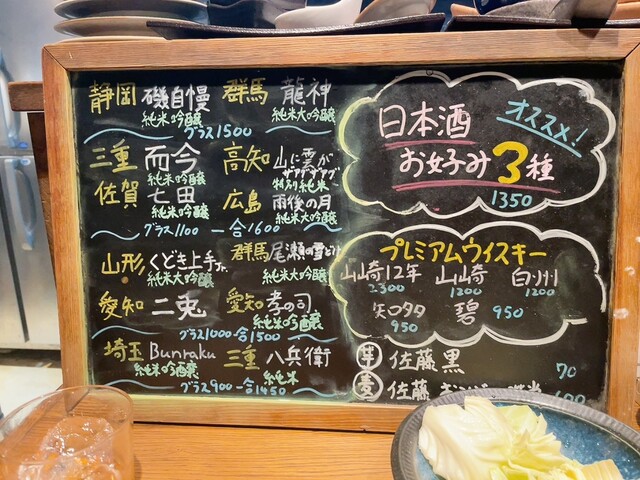 静岡 磯自慢 純米吟醸
群馬 龍神 純米大吟醸
グラス1500
三重 而今 純米吟醸
高知 山に雲が 特別純米
佐賀 七田 純米吟醸
広島 雨後の月 純米大吟醸
グラス1100 一合1600
山形 くどき上手Jr. 純米大吟醸
群馬 尾瀬の雪どけ 純米大吟醸
愛知 二兎
愛知 孝の司 純米吟醸
グラス1000 一合1500
埼玉 Bunraku 純米吟醸
三重 八兵衛 純米
グラス900 一合1450
日本酒 オススメ!
お好み3種
1350
プレミアムウイスキー
山崎12年 2300
山崎 1200
白州 1200
知多 950
碧 950
芋 佐藤 黒 70
麦 佐藤